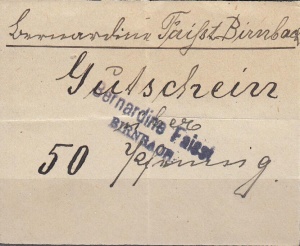 Bernardine Faisst Birnbach
Gutschein
über
Bernardine Faisst
BIRNBACH
50 Pfennig.